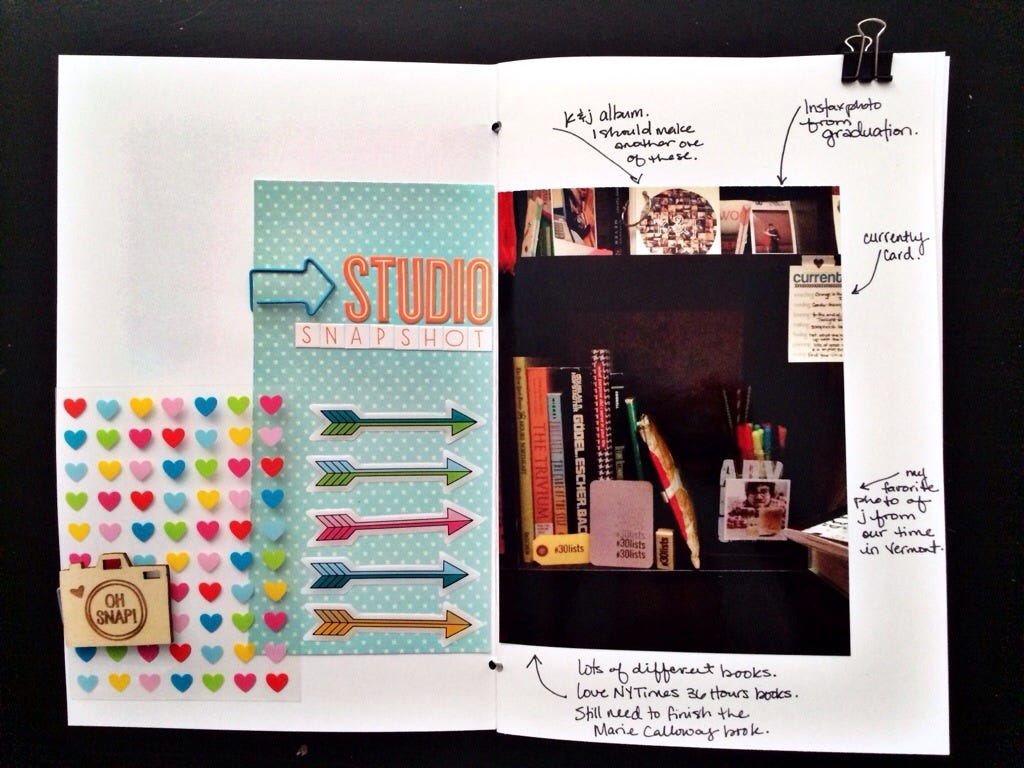 k&j album.
I should make
another one
of these.
Instax photo
from
graduation.
currently
card.
STUDIO
SNAPSHOT
current
THE TRIVIUM
GÖDEL, ESCHER, BAC
#30lists
#30lists
#30lists
#30lists
#30lists
OH
SNAP!
my
favorite
photo of
j from
our time
in Vermont.
lots of different books.
Love NYTimes 36 Hours books.
Still need to finish the
Marie Calloway book.